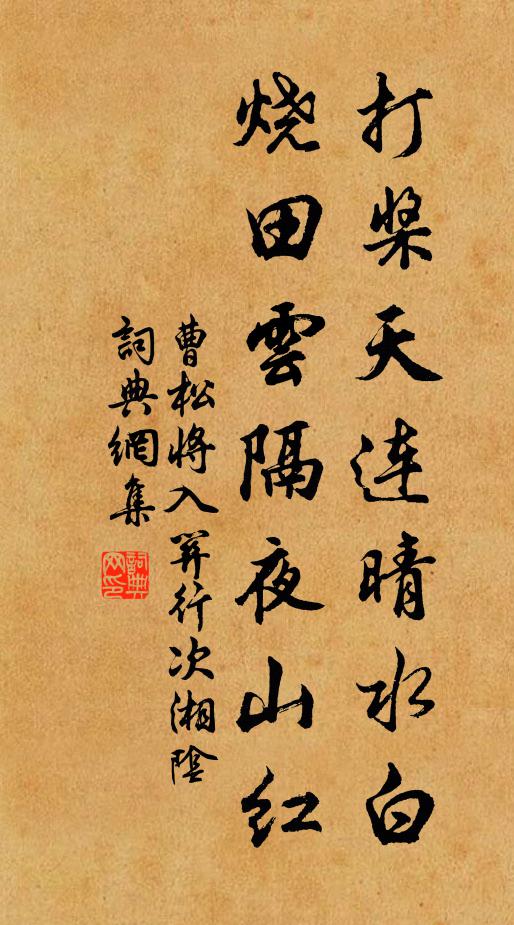 打桨天连晴水白
烧田雲隔夜山红
曹松将入关行次湘陰
詞典網集
詞典网印